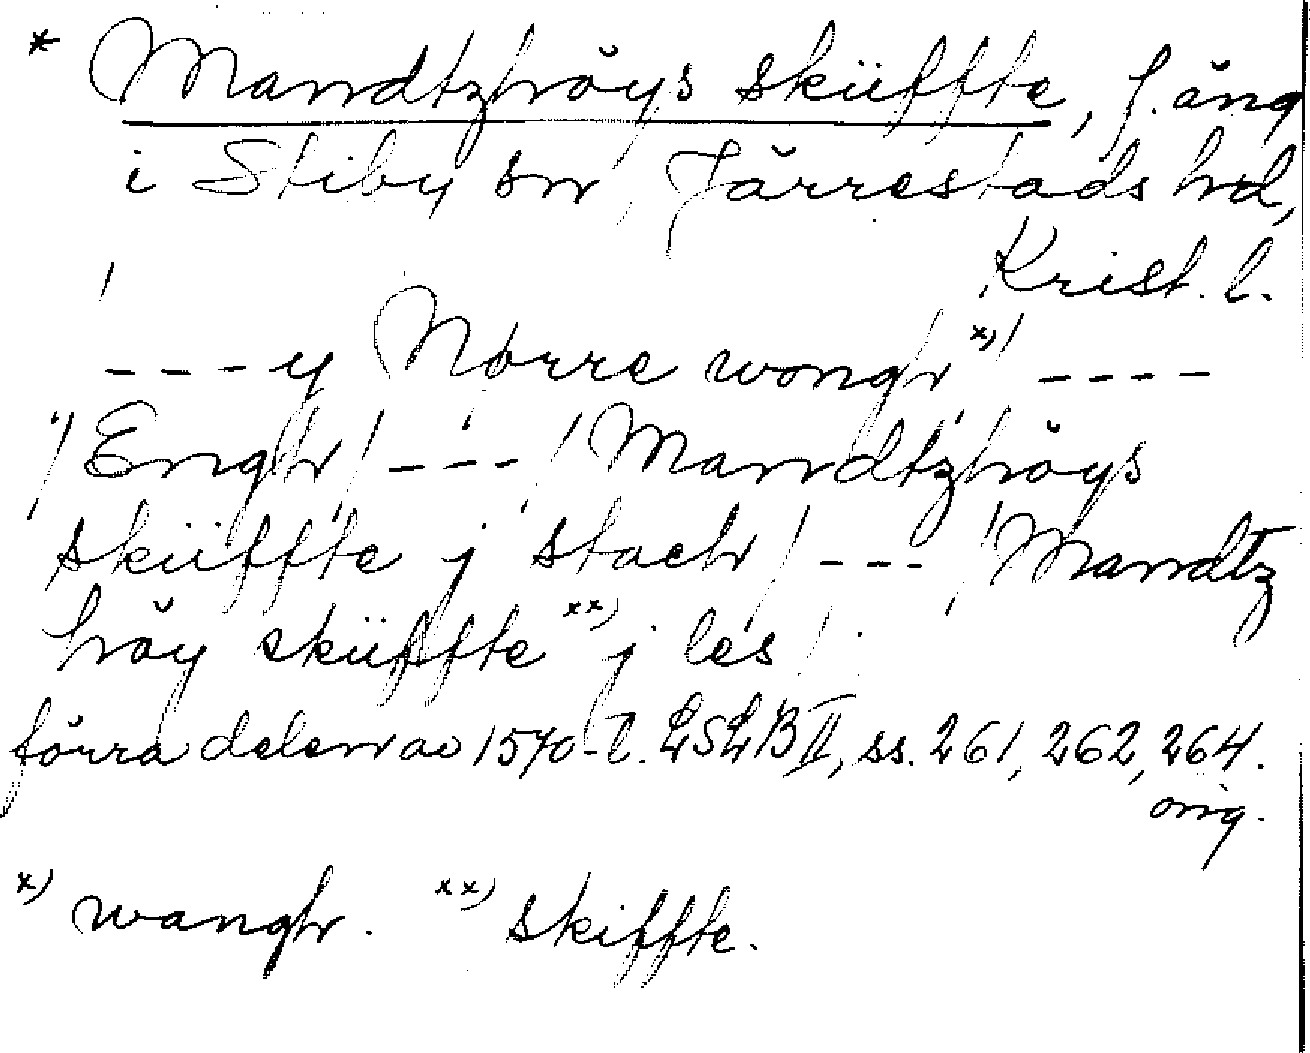 * Mandtzhöys sküffte, f. äng
i Stiby sn, Järrestads hd,
Krist. l.
---y Nörre wongh x) ----
/Engh/---/Mandtzhöys
sküffte j stach/---/Mandtz
höy sküffte xx) j les/
förra delen av 1570-t. LSLB II, ss. 261, 262, 264.
orig.
x) wangh. xx) skiffte.